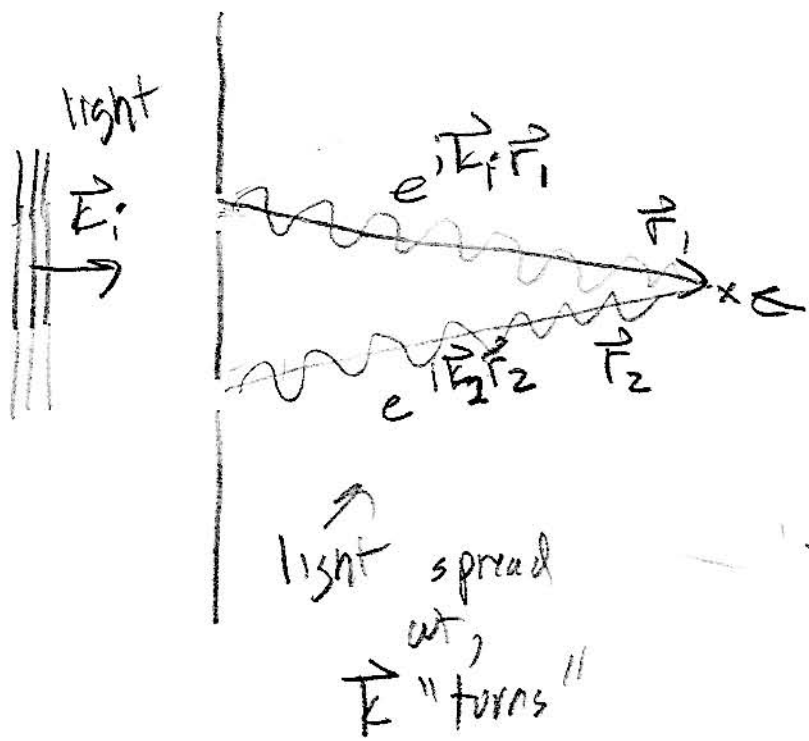 light
k⃗ᵢ
e^{i k⃗₁·r⃗₁}
r⃗₁
x ←
e^{i k⃗₂ r⃗₂}
r⃗₂
↗
light spread
out,
k⃗ "turns"